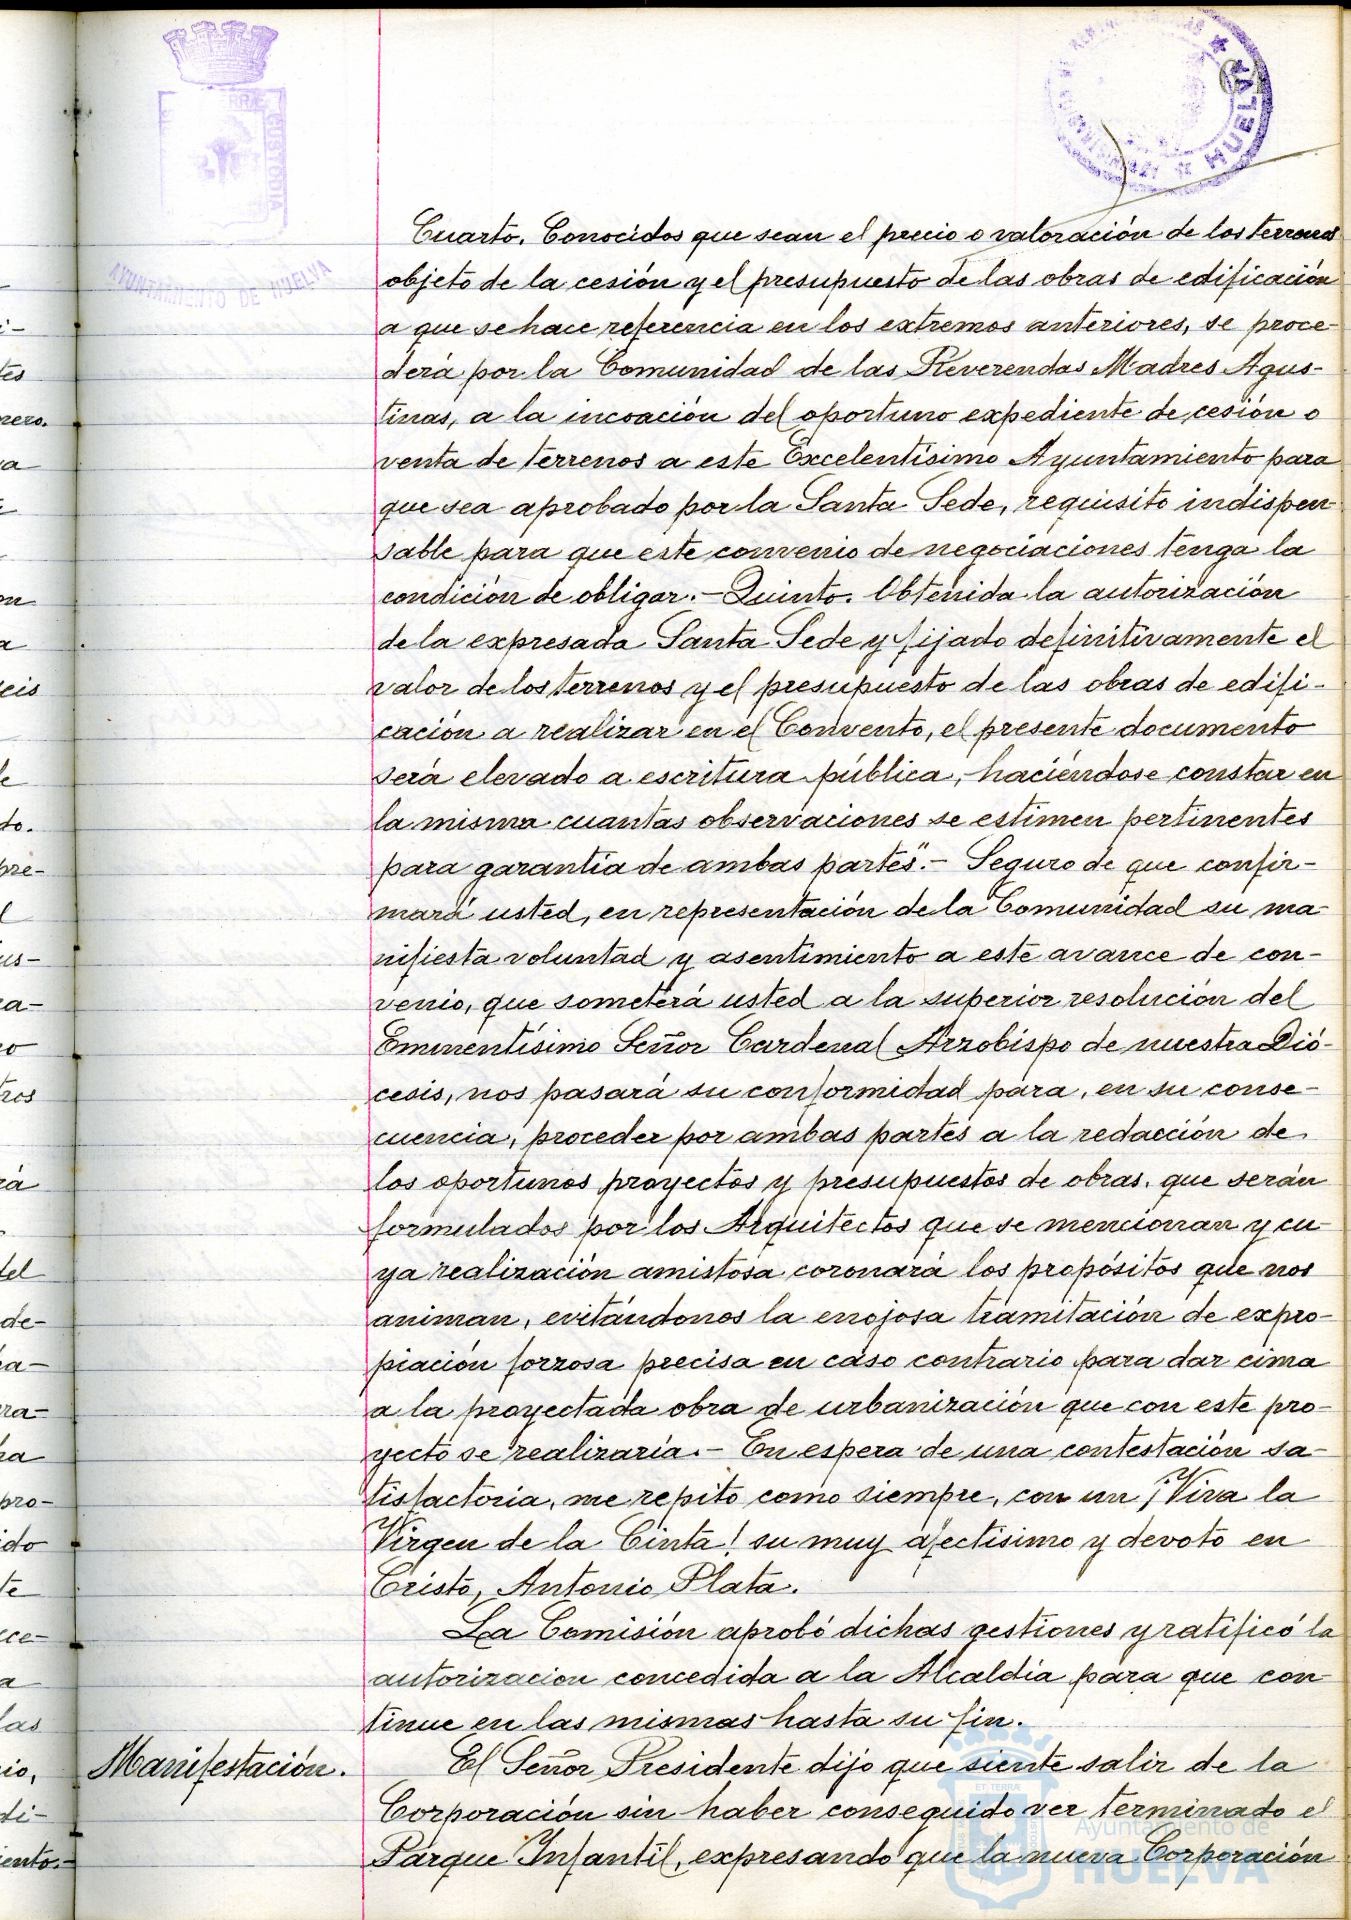 Cuarto. Conocidos que sean el precio o valoración de los terrenos
objeto de la cesión y el presupuesto de las obras de edificación
a que se hace referencia en los extremos anteriores, se proce-
derá por la Comunidad de las Reverendas Madres Agus-
tinas, a la incoación del oportuno expediente de cesión o
venta de terrenos a este Excelentísimo Ayuntamiento para
que sea aprobado por la Santa Sede, requisito indispen-
sable para que este convenio de negociaciones tenga la
condición de obligar.- Quinto. Obtenida la autorización
de la expresada Santa Sede y fijado definitivamente el
valor de los terrenos y el presupuesto de las obras de edifi-
cación a realizar en el Convento, el presente documento
será elevado a escritura pública, haciéndose constar en
la misma cuantas observaciones se estimen pertinentes
para garantía de ambas partes".- Seguro de que confir-
mará usted, en representación de la Comunidad su ma-
nifiesta voluntad y asentimiento a este avance de con-
venio, que someterá usted a la superior resolución del
Eminentísimo Señor Cardenal Arzobispo de nuestra Dió-
cesis, nos pasará su conformidad para, en su conse-
cuencia, proceder por ambas partes a la redacción de
los oportunos proyectos y presupuestos de obras, que serán
formulados por los Arquitectos que se mencionan y cu-
ya realización amistosa coronará los propósitos que nos
animan, evitándonos la enojosa tramitación de expro-
piación forzosa precisa en caso contrario para dar cima
a la proyectada obra de urbanización que con este pro-
yecto se realizaría.- En espera de una contestación sa-
tisfactoria, me repito como siempre, con un ¡Viva la
Virgen de la Cinta! su muy afectísimo y devoto en
Cristo, Antonio Plata.
La Comisión aprobó dichas gestiones y ratificó la
autorizacion concedida a la Alcaldía para que con-
tinue en las mismas hasta su fin.
Manifestación.
El Señor Presidente dijo que siente salir de la
Corporación sin haber conseguido ver terminado el
Parque Infantil, expresando que la nueva Corporación
AYUNTAMIENTO DE HUELVA
CUSTODIA
HUELVA
Ayuntamiento de
HUELVA